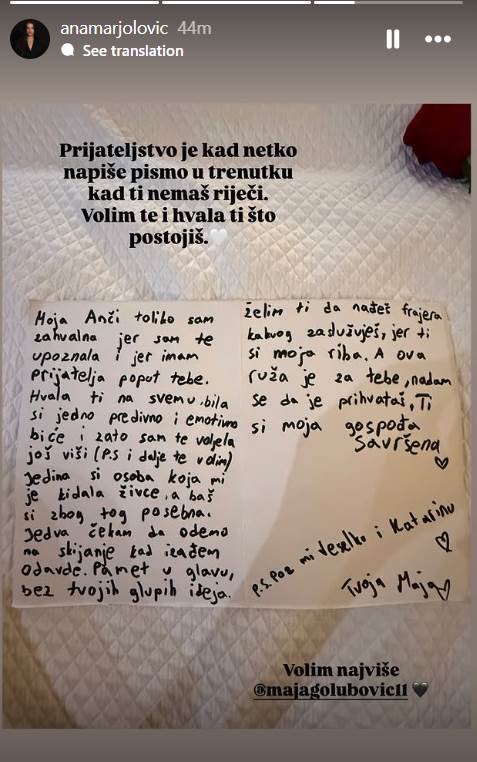 anamarjolovic 44m
See translation
Prijateljstvo je kad netko
napiše pismo u trenutku
kad ti nemaš riječi.
Volim te i hvala ti što
postojiš.🤍
Moja Anči toliko sam
zahvalna jer sam te
upoznala i jer imam
prijatelja poput tebe.
Hvala ti na svemu, bila
si jedno predivno i emotivno
biće i zato sam te voljela
još viši (P.S i dalje te volim)
Jedina si osoba koja mi
je kidala živce, a baš
si zbog tog posebna.
Jedva čekam da odemo
na skijanje kad izađem
odavde. Pamet u glavu,
bez tvojih glupih ideja.
želim ti da nađeš frajera
kakvog zaslužuješ, jer ti
si moja riba. A ova
ruža je za tebe, nadam
se da je prihvataš, Ti
si moja gospođa
Savršena
♡
P.S. Poz mi Veselko i Katarinu
♡
Tvoja Maja♡
Volim najviše
@majagolubovic11 🖤